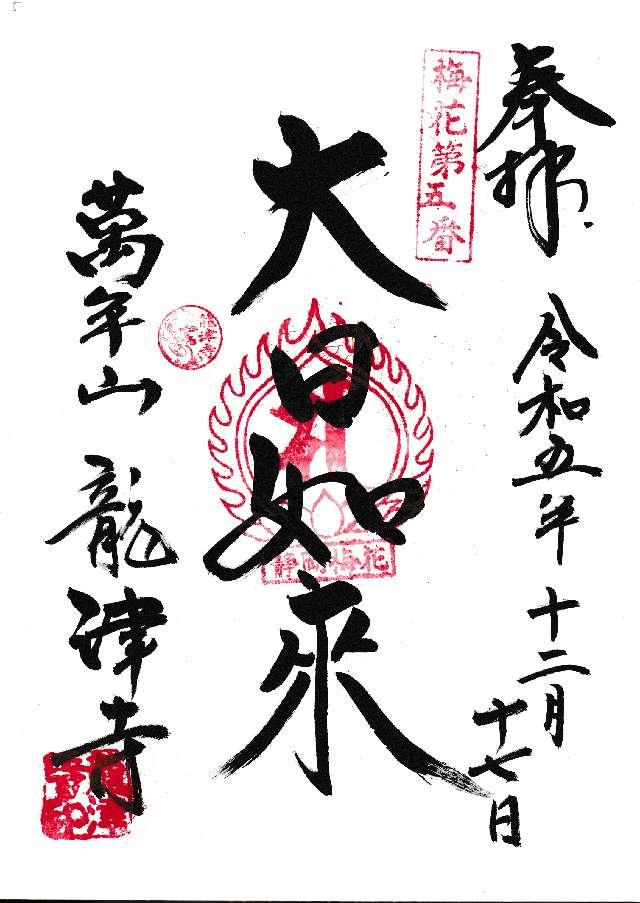 奉拝
令和五年
十二月
十七日
梅花第五番
大日如來
静岡梅花
萬年山 龍津寺